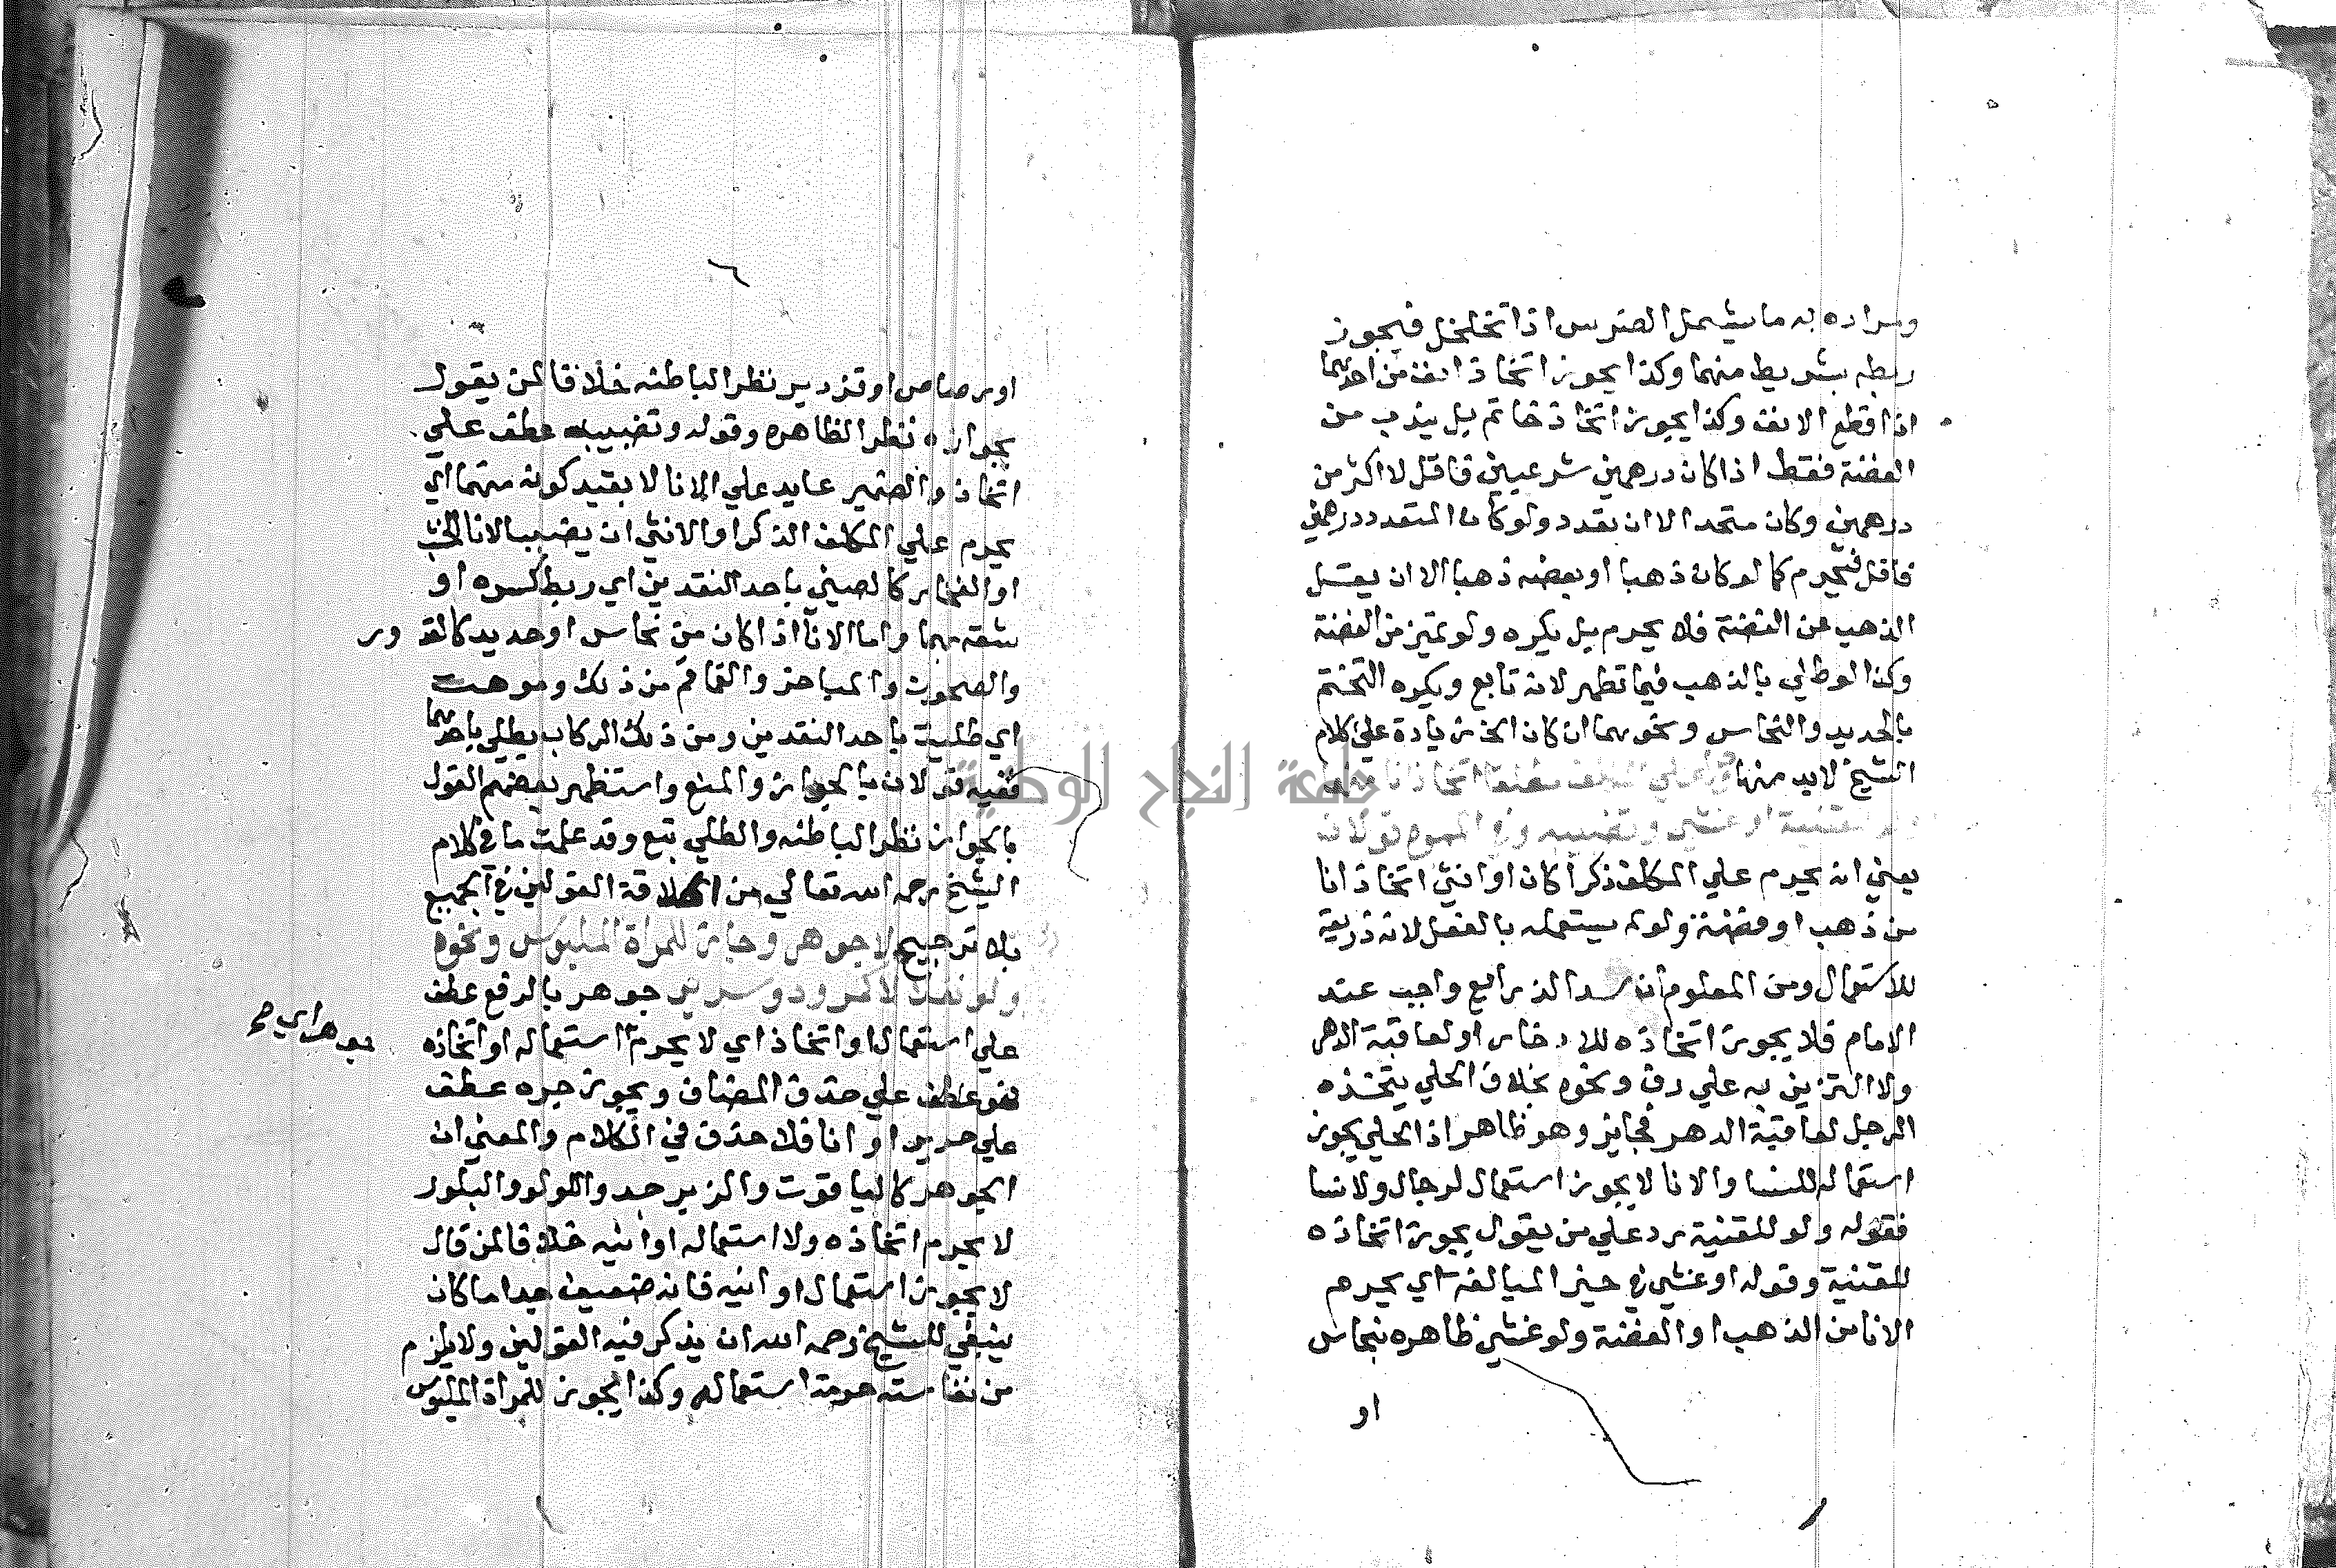 ومراده به ما يشمل الضرس اذا تخلخل فيجوز
ربطه بشريط منهما وكذا يجوز اتخاذ انف من احدهما
اذا قطع الانف وكذا يجوز اتخاذ خاتم بل يندب من
الفضة فقط اذا كان درهمين شرعيين فاقل لا اكثر من
درهمين وكان متحدا لا ان تعدد ولو كان المتعدد درهمين
فاقل فيحرم كما لو كان ذهبا او بعضه ذهبا الا ان يقل
الذهب عن الفضة فلا يحرم بل يكره ولو تميز من الفضة
وكذا لو طلي بالذهب فيما تظهر لانه تابع ويكره التختم
بالحديد والنحاس ونحوهما ان كان الخ زيادة علي كلام
الشيخ لا بد منها علي المكلف مطلقا اتخاذ انا منهما
ولو لقنية او غشي وتضبيبه وفي المموه قولان
يعني انه يحرم علي المكلف ذكرا كان او انثي اتخاذ انا
من ذهب او فضة ولو لم يستعمله بالفعل لانه ذريعة
للاستعمال ومن المعلوم ان سد الذرايع واجب عند
الامام فلا يجوز اتخاذه للادخار او لعاقبة الدهر
ولا التزين به علي رف ونحوه بخلاف الحلي يتخذه
الرجل لعاقبة الدهر فجايز وهو ظاهر اذ الحلي يجوز
استعماله للنسا والانا لا يجوز استعمال لرجال ولا نسا
فقوله ولو للقنية رد علي من يقول يجوز اتخاذه
للقنية وقوله او غشي في حيز المبالغة اي يحرم
الانا من الذهب او الفضة ولو غشي ظاهره بنحاس
او
او رصاص او قزدير نظرا لباطنه خلافا لمن يقول
بجوازه نظرا لظاهره وقوله وتضبيبه عطف علي
اتخاذ والضمير عايد علي الانا لا بقيد كونه منهما اي
يحرم علي المكلف الذكر او الانثي ان يضبب الانا الخشب
او الفخار كالصيني باحد النقدين اي ربط كسره او
شقه بهما واما الانا اذا كان من نحاس او حديد كالقدور
والصحون والمباخر والقماقم من ذلك وموهت
اي طليت باحد النقدين ومن ذلك الركاب يطلي باحدهما
ففيه قولان بالجواز والمنع واستظهر بعضهم القول
بالجواز نظرا لباطنه والطلي تبع وقد علمت ما في كلام
الشيخ رحمه الله تعالي من اطلاقه القولين في الجميع
بلا ترجيح لا جوهر وجاز للمراة الملبوس ونحوه
ولو نعلا لا كمرود وسرير جوهر بالرفع عطف
علي استعمال او اتخاذ اي لا يحرم استعماله او اتخاذه
جوهر اي صح
فهو عطف علي حذف المضاف ويجوز جره عطف
علي حرير او انا فلا حذف في الكلام والمعني ان
الجوهر كالياقوت والزبرجد واللولو والبلور
لا يحرم اتخاذه ولا استعماله اوانيه خلافا لمن قال
لا يجوز استعمال اوانيه فانه ضعيف جدا ما كان
ينبغي للشيخ رحمه الله ان يذكر فيه القولين ولا يلزم
من نفاسته حرمة استعماله وكذا يجوز للمراة الملبوس
جامعة النجاح الوطنية